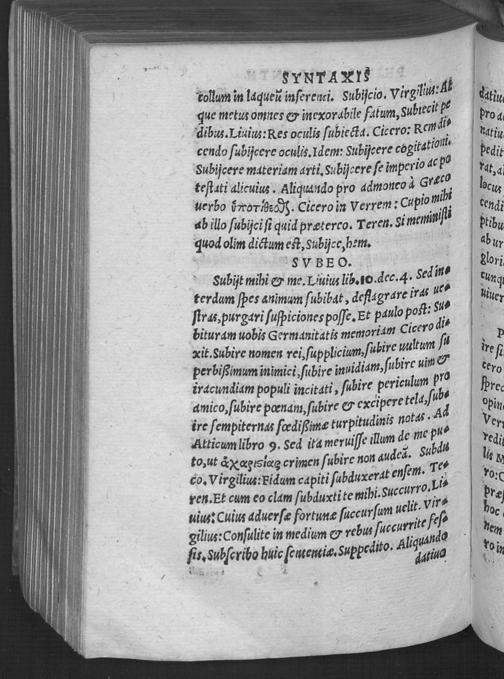 SYNTAXIS
collum in laqueũ inferenci. Subijcio. Virgilius: At
que metus omnes & inexorabile fatum, Subiecit pe
dibus. Liuius: Res oculis subiecta. Cicero: Rem di⸗
cendo subijcere oculis. Idem: Subijcere cogitationi.
Subijcere materiam arti. Subijcere se imperio ac po
testati alicuius. Aliquando pro admoneo à Græco
uerbo Cicero in Verrem: Cupio mihi
ab illo subijci si quid præterco. Teren. Si meministi
quod olim dictum est, Subijce, hem.
SVBEO.
Subijt mihi & me. Liuius lib. 10. dec. 4. Sed in⸗
terdum spes animum subibat, deflagrare iras ue⸗
stras, purgari suspiciones posse. Et paulo post: Su⸗
bituram uobis Germanitatis memoriam Cicero di⸗
xit. Subire nomen rei, supplicium, subire uultum su
perbißimum inimici, subire inuidiam, subire uim &
iracundiam populi incitati, subire periculum pro
amico, subire pœnam, subire & excipere tela, sub⸗
ire sempiternas fœdißimæ turpitudinis notas. Ad
Atticum libro 9. Sed ita meruisse illum de me pu⸗
to, ut ἀχαριςίας crimen subire non audeã. Subdu
co. Virgilius: Fidum capiti subduxerat ensem. Te⸗
ren. Et cum eo clam subduxti te mihi. Succurro. Li⸗
uius: Cuius aduersæ fortunæ succursum uelit. Vir⸗
gilius: Consulite in medium & rebus succurrite fes⸗
sis. Subscribo huic sententiæ. Suppedito. Aliquando
datiuo